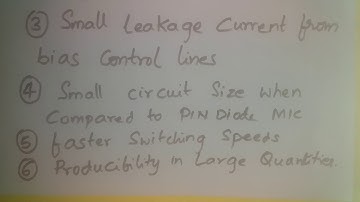 ③ Small Leakage Current from
bias Control lines
④ Small circuit Size when
Compared to PIN Diode MIC
⑤ faster Switching Speeds
⑥ Producibility in Large Quantities.